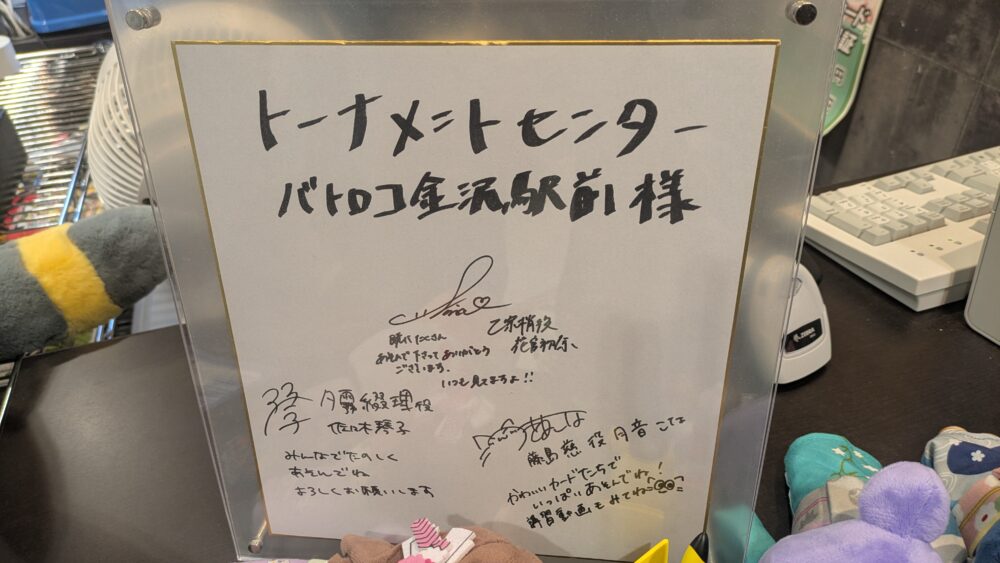 トーナメントセンター
バトロコ金沢駅前様
Nina
乙宗梢役
花宮初奈
既にたくさん
あそんで下さってありがとう
ございます。
いつも見てますよ!!
夕霧綴理役
佐々木琴子
みんなでたのしく
あそんでね
よろしくお願いします
藤島慈役 月音こな
かわいいカードたちで
いっぱいあそんでね!
講習動画もみてね